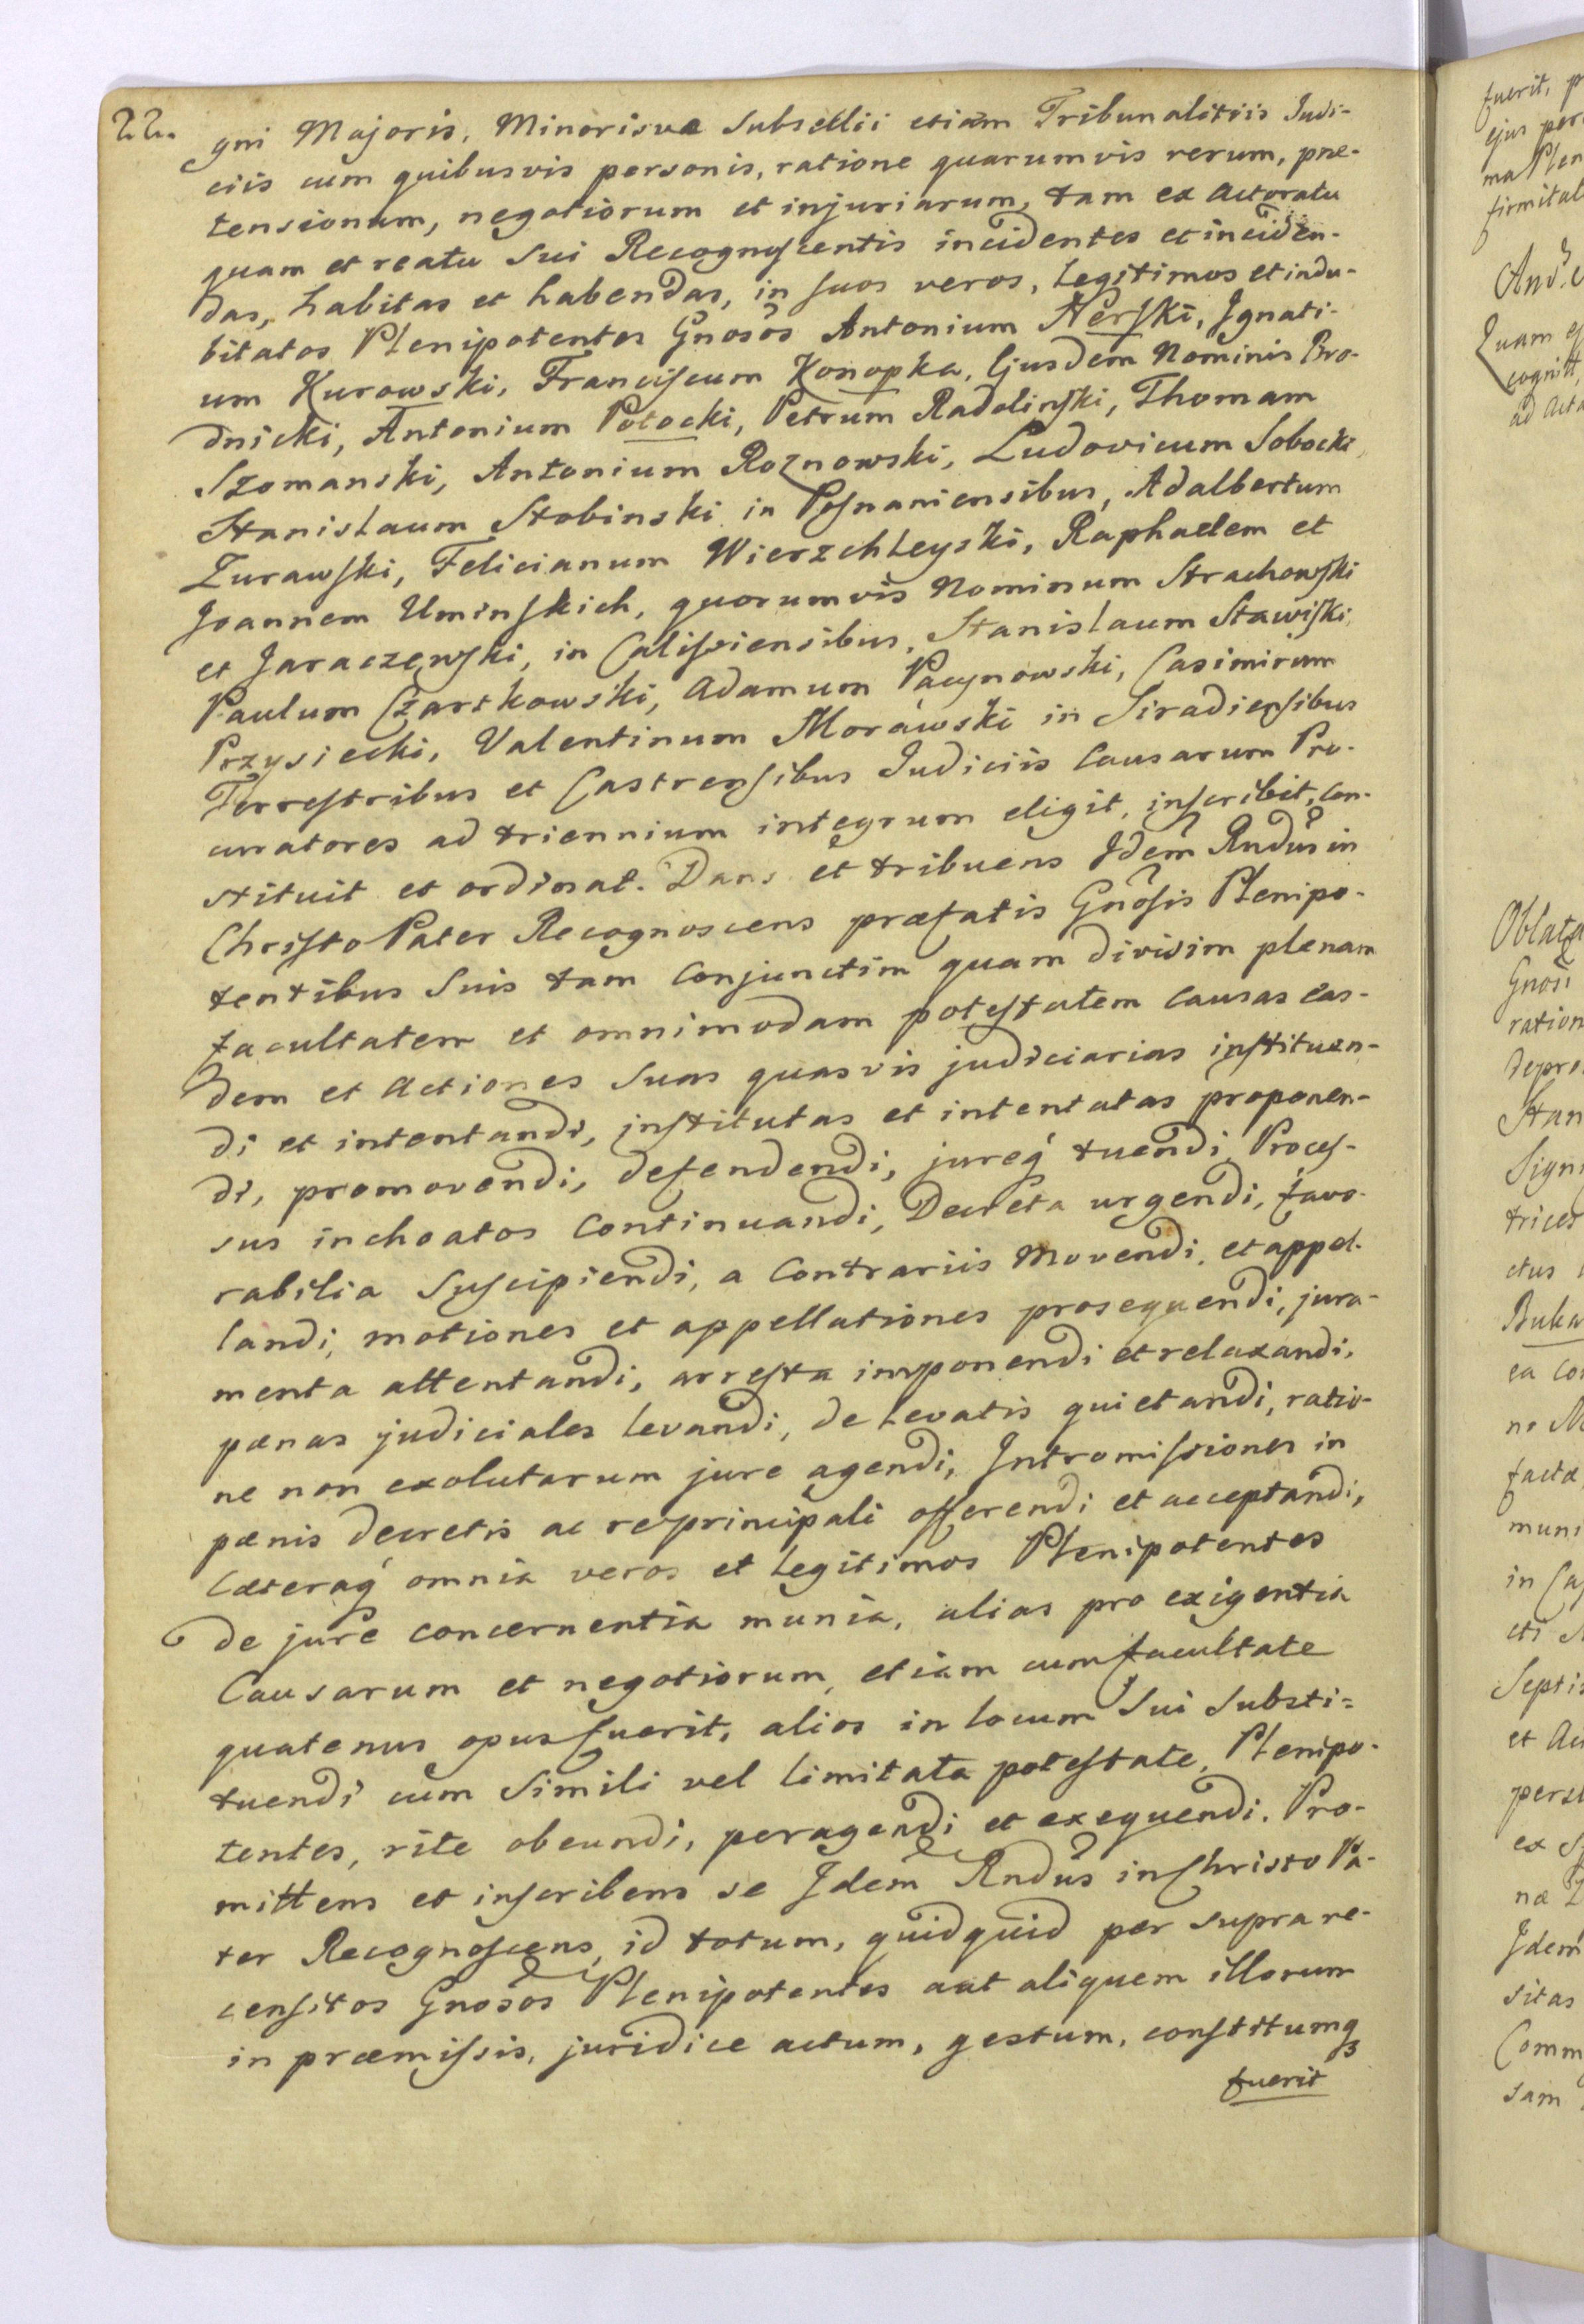 22.
gni Majoris, Minorisve Subsellii etiam Tribunalitiis Judi-
ciis cum quibusvis personis, ratione quarumvis rerum, præ-
tensionum, negotiorum et injuriarum, tam ex actoratu
quam et reatu Sui Recognoscentis incidentes et inciden-
das, habitas et habendas, in suos veros, legitimos et indu-
bitatos Plenipotentes Gnosos Antonium Nerski, Ignati-
um Kurowski, Franciscum Konopka, Ejusdem Nominis Bro-
dnicki, Antonium Potocki, Petrum Radolinski, Thomam
Szomanski, Antonium Roznowski, Ludovicum Sobocki,
Stanislaum Stobinski in Posnaniensibus, Adalbertum
Zurawski, Felicianum Wierzchleyski, Raphaelem et
Joannem Uminskich, quorumvis Nominum Strachowski
et Jaraczewski, in Calissiensibus, Stanislaum Stawiski,
Paulum Czartkowski, Adamum Pacynowski, Casimirum
Przysiecki, Valentinum Morawski in Siradiensibus
Terrestribus et Castrensibus Judiciis Causarum Pro-
curatores ad triennium integrum eligit, inscribit, con-
stituit et ordinat. Dans et tribuens Idem Rndus in
Christo Pater Recognoscens præfatis Gnosis Plenipo-
tentibus Suis tam conjunctim quam divisim plenam
facultatem et omnimodam potestatem causas eas-
dem et Actiones Suas quasvis judiciarias instituen-
di et intentandi, institutas et intentatas proponen-
di, promovendi, defendendi, jureq́ tuendi, Proces-
sus inchoatos continuandi, Decreta urgendi, favo-
rabilia Suscipiendi, a Contrariis Movendi, et appel-
landi, motiones et appellationes prosequendi, jura-
menta attentandi, arresta imponendi et relaxandi,
pænas judiciales levandi, de levatis quietandi, ratio-
ne non exolutarum jure agendi, Intromissiones in
pænis decretis ac re principali offerendi et acceptandi,
Cæteraq́ omnia veros et legitimos Plenipotentes
de jure concernentia munia, alias pro exigentia
Causarum et negotiorum, etiam cum facultate
quatenus opus fuerit, alios in locum Sui Substi-
tuendi cum Simili vel limitata potestate, Plenipo-
tentes, rite obeundi, peragendi et exequendi. Pro-
mittens et inscribens se Idem Rndus in Christo Pa-
ter Recognoscens, id totum, quidquid per supra re-
censitos Gnosos Plenipotentes aut aliquem illorum
in præmissis, juridice actum, gestum, constitumq
fuerit
fuerit, p
ejus per
ma Plen
firmitat
And.
Quam
cognit
ad Acta
Oblata
Gnosi
ration
depro
Stan
Sign
trices
ctus
Buka
ea co
ne
factæ
muni
in Cas
cti
Septi
et Ac
pers
ex S
næ
Idem
sitas
Comm
sam